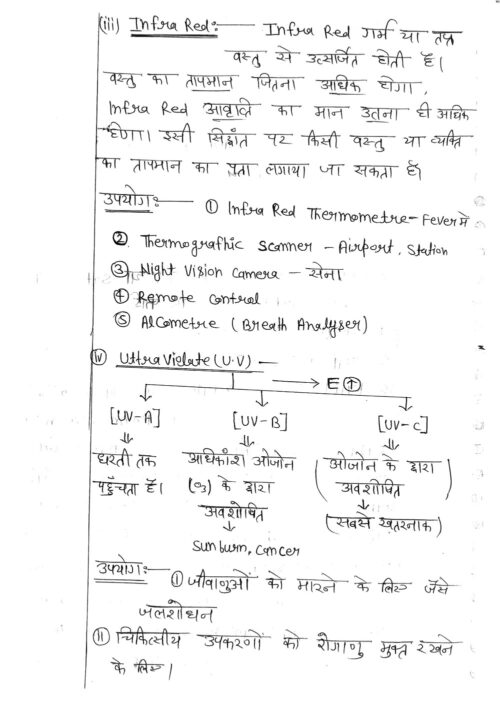 (iii) Infra Red:- Infra Red गर्म या तप्त
वस्तु से उत्सर्जित होती हैं।
वस्तु का तापमान जितना अधिक होगा,
Infra Red आवृति का मान उतना ही अधिक
होगा। इसी सिद्धांत पर किसी वस्तु या व्यक्ति
का तापमान का पता लगाया जा सकता हैं।
उपयोग:- ① Infra Red Thermometre - Fever में
② Thermografhic Scanner - Airport, Station
③ Night Vision Camera - सेना
④ Remote Control
⑤ AlCometre (Breath Analyser)
(iv) Ultra Violate (U.V) -
→ E↑
[UV-A] [UV-B] [UV-C]
धरती तक अधिकांश ओजोन (ओजोन के द्वारा
पहुँचता हैं। (O₃) के द्वारा अवशोषित)
अवशोषित (सबसे खतरनाक)
Sunburn, Cancer
उपयोग:- ① जीवाणुओं को मारने के लिए जैसे
जलशोधन
⑪ चिकित्सीय उपकरणों को रोगाणु मुक्त रखने
के लिए।